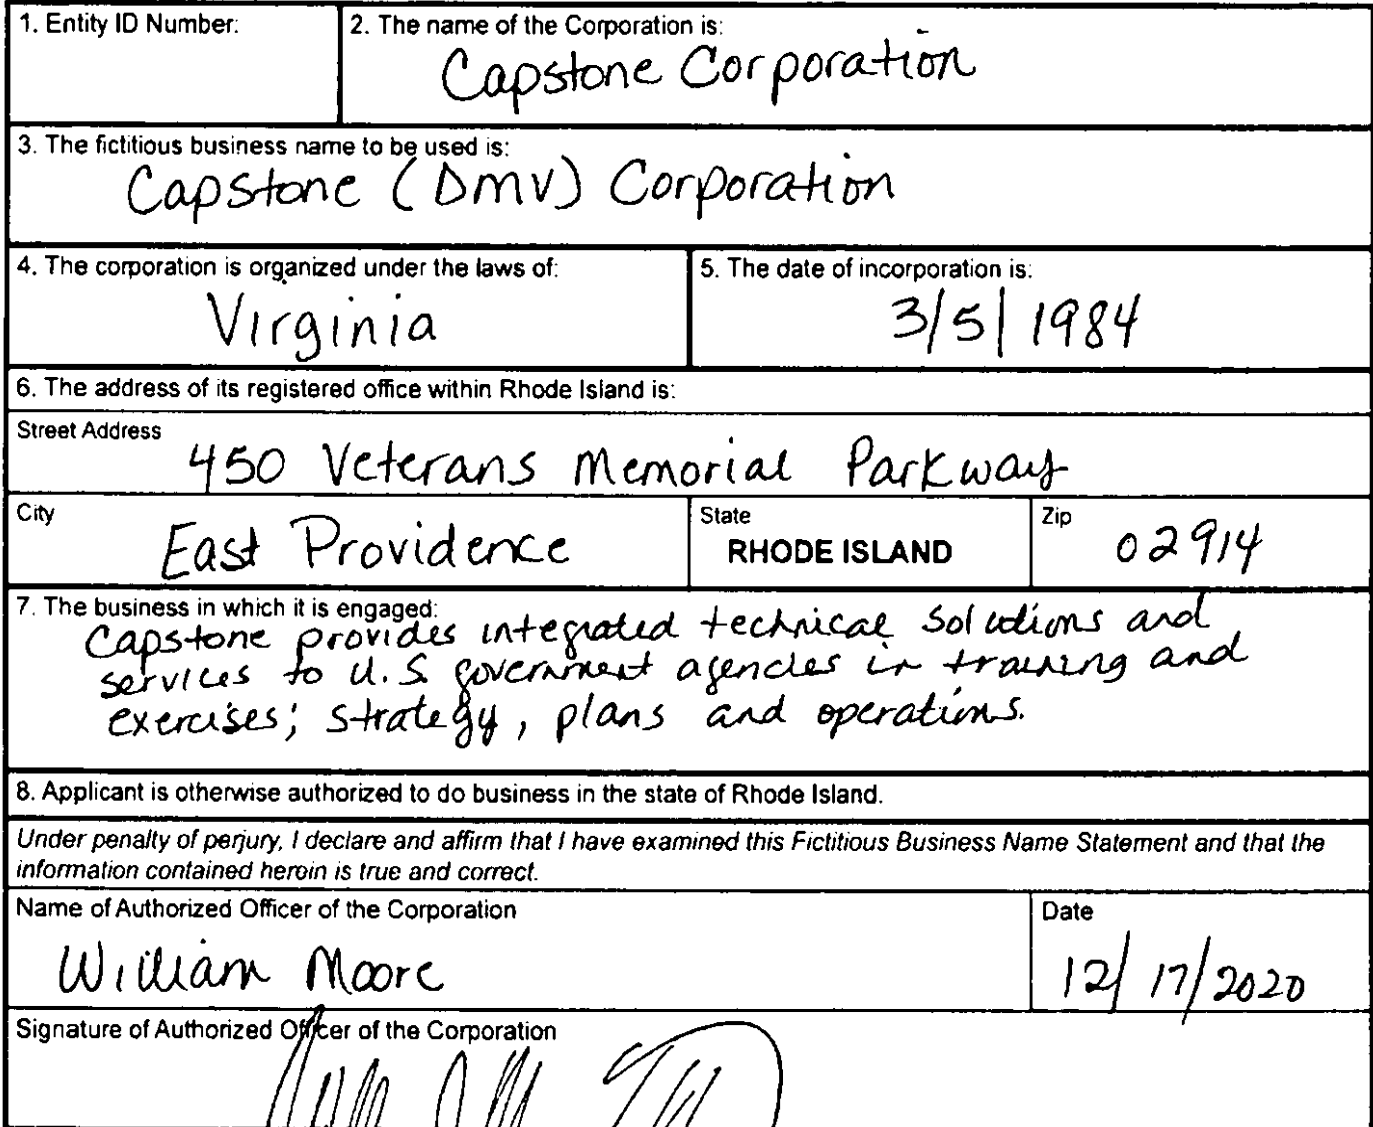 1. Entity ID Number:
2. The name of the Corporation is:
Capstone Corporation
3. The fictitious business name to be used is:
Capstone (DMV) Corporation
4. The corporation is organized under the laws of:
Virginia
5. The date of incorporation is:
3/5/1984
6. The address of its registered office within Rhode Island is:
Street Address
450 Veterans Memorial Parkway
City
East Providence
State
RHODE ISLAND
Zip
02914
7. The business in which it is engaged:
Capstone provides integrated technical solutions and
services to U.S. government agencies in training and
exercises; strategy, plans and operations.
8. Applicant is otherwise authorized to do business in the state of Rhode Island.
Under penalty of perjury, I declare and affirm that I have examined this Fictitious Business Name Statement and that the
information contained herein is true and correct.
Name of Authorized Officer of the Corporation
William Moore
Date
12/17/2020
Signature of Authorized Officer of the Corporation